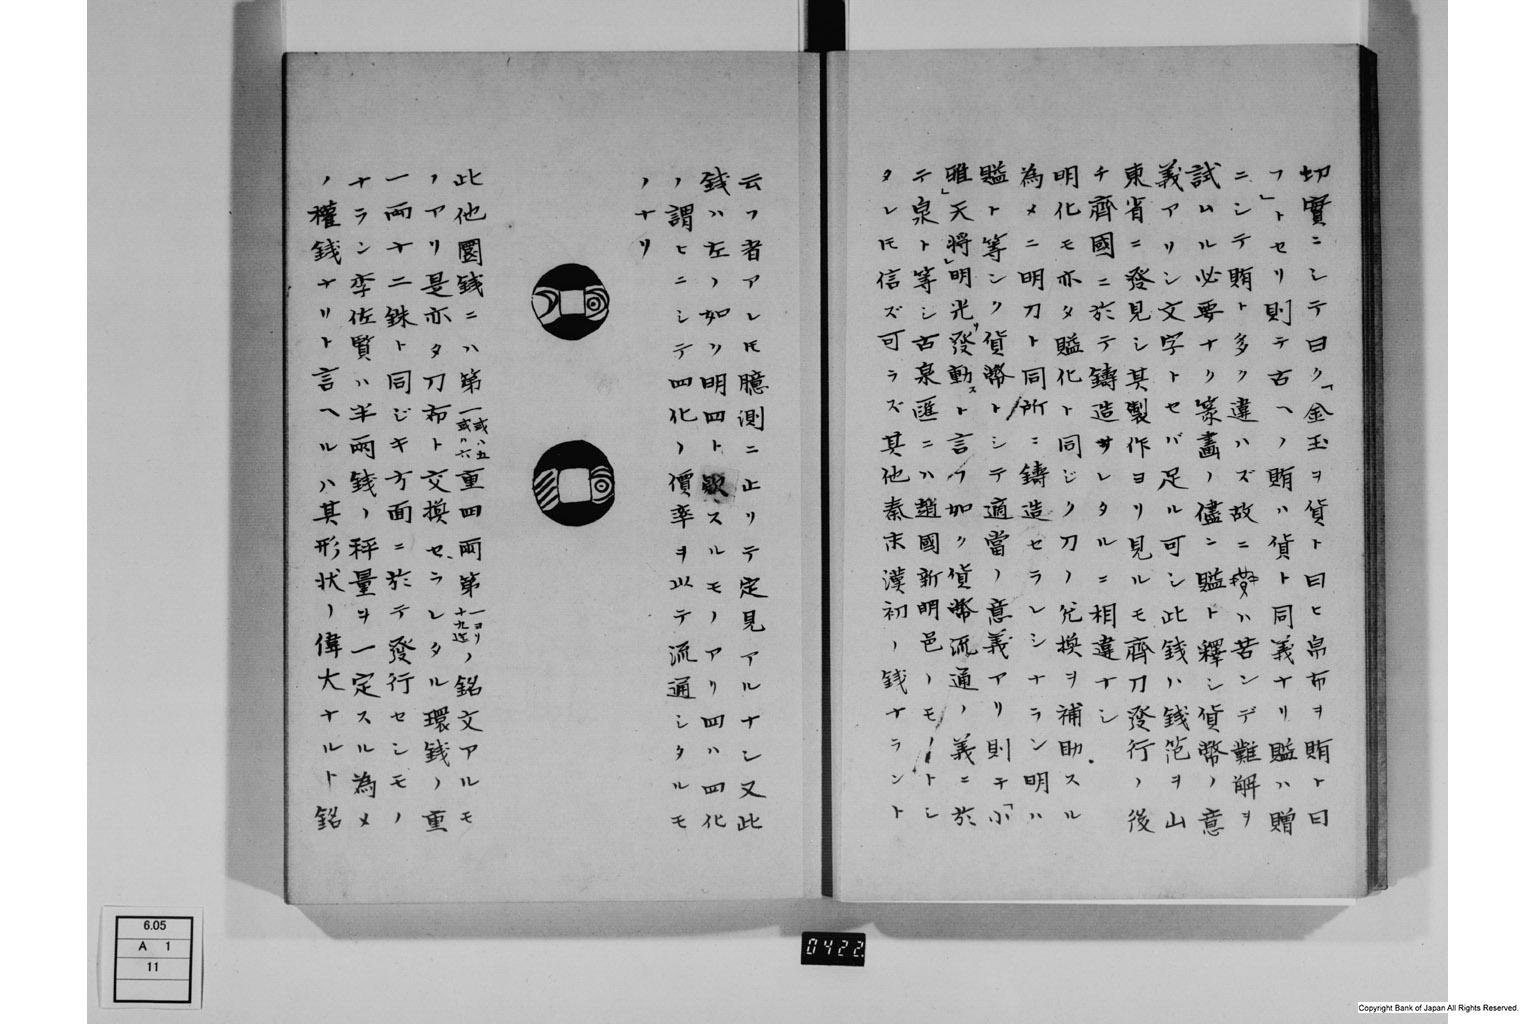 切實ニシテ曰ク「金玉ヲ貨ト曰ヒ帛布ヲ賄ト曰
フ」トセリ則テ古ヘノ賄ハ貨ト同義ナリ賹ハ贈
ニシテ賄ト多ク違ハズ故ニ ハ苦ンデ難解ヲ
試ムル必要ナク篆畵ノ儘ニ賹ト釋シ貨幣ノ意
義アリシ文字トセバ足ル可シ此錢ハ錢笵ヲ山
東省ニ發見シ其製作ヨリ見ルモ齊刀發行ノ後
チ齊國ニ於テ鑄造サレタルニ相違ナシ
明化モ亦タ賹化ト同ジク刀ノ兌換ヲ補助スル
為メニ明刀ト同所ニ鑄造セラレシナラン明ハ
賹ト等シク貨幣トシテ適當ノ意義アリ則チ「小
雅」天將」明光發リ動ストト言フ如ク貨幣流通ノ義ニ於
テ泉ト等シ古泉匯ニハ趙國新明邑ノモノトシ
タレ𪜈信ズ可ラズ其他秦末漢初ノ錢ナラント
云フ者アレ𪜈臆測ニ止リテ定見アルナシ又此
錢ハ左ノ如ク明四ト スルモノアリ四ハ四化
ノ謂ヒニシテ四化ノ價率ヲ以テ流通シタルモ
ノナリ
此他圜錢ニハ第一或ハ五或ハ六重四兩第一ヨリ十九迄ノ銘文アルモ
ノアリ是亦タ刀布ト交換セラレタル環錢ノ重
一兩十二銖ト同ジキ方面ニ於テ發行セシモノ
ナラン李佐賢ハ半兩錢ノ秤量ヲ一定スル為メ
ノ權錢ナリト言ヘルハ其形狀ノ偉大ナルト銘
0422
6.05
A 1
11
Copyright Bank of Japan All Rights Reserved.